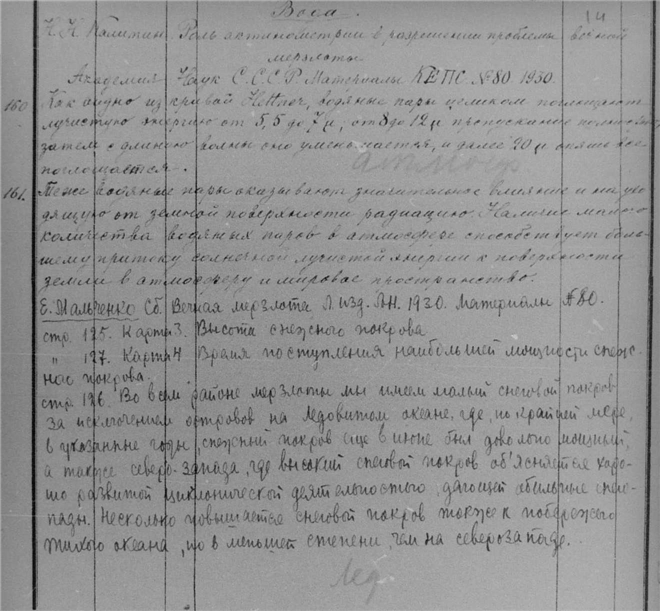 Вода.
14
Н. Н. Калитин. Роль актинометрии в разрешении проблемы вечной
мерзлоты.
Академия Наук С.С.С.Р. Материалы КЕПС №80 1930.
160 Как видно из кривой Hettner, водяные пары целиком поглощают
лучистую энергию от 5,5 до 7 μ, от 8 до 12 μ пропускание полное
затем с длиною волны оно уменьшается, и далее 20 μ опять все
поглощается.
атмосф
161. Теже водяные пары оказывают значительное влияние и на ухо
дящую от земной поверхности радиацию. Наличие
количества водяных паров в атмосфере способствует боль
шему притоку солнечной лучистой энергии к поверхности
земли в атмосферу и мировое пространство.
Е. Мальченко Сб. Вечная мерзлота Л изд. А.Н. 1930. Материалы №80.
стр. 125. Карта 3. Высота снежного покрова
" 127. Карта 4 Время поступления наибольшей мощности снеж-
ного покрова.
стр. 126. Во всем районе мерзлоты мы имеем малый снеговой покров
за исключением островов на Ледовитом океане, где, по крайней мере,
в указанные годы, снежный покров еще в июне был довольно мощный,
а также северо-запада, где высокий снеговой покров об'ясняется хоро-
шо развитой циклонической деятельностью, дающей обильные снего-
пады. Несколько повышается снеговой покров также к побережью
Тихого океана, но в меньшей степени, чем на северозападе.
Лед